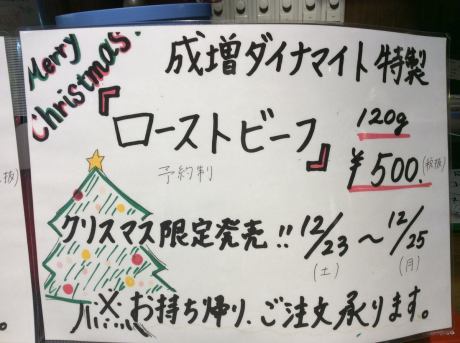 Merry
Christmas
成増ダイナマイト特製
『ローストビーフ』
120g
予約制
¥500(税抜)
クリスマス限定発売!! 12/23~12/25
(土) (月)
※お持ち帰り、ご注文承ります。